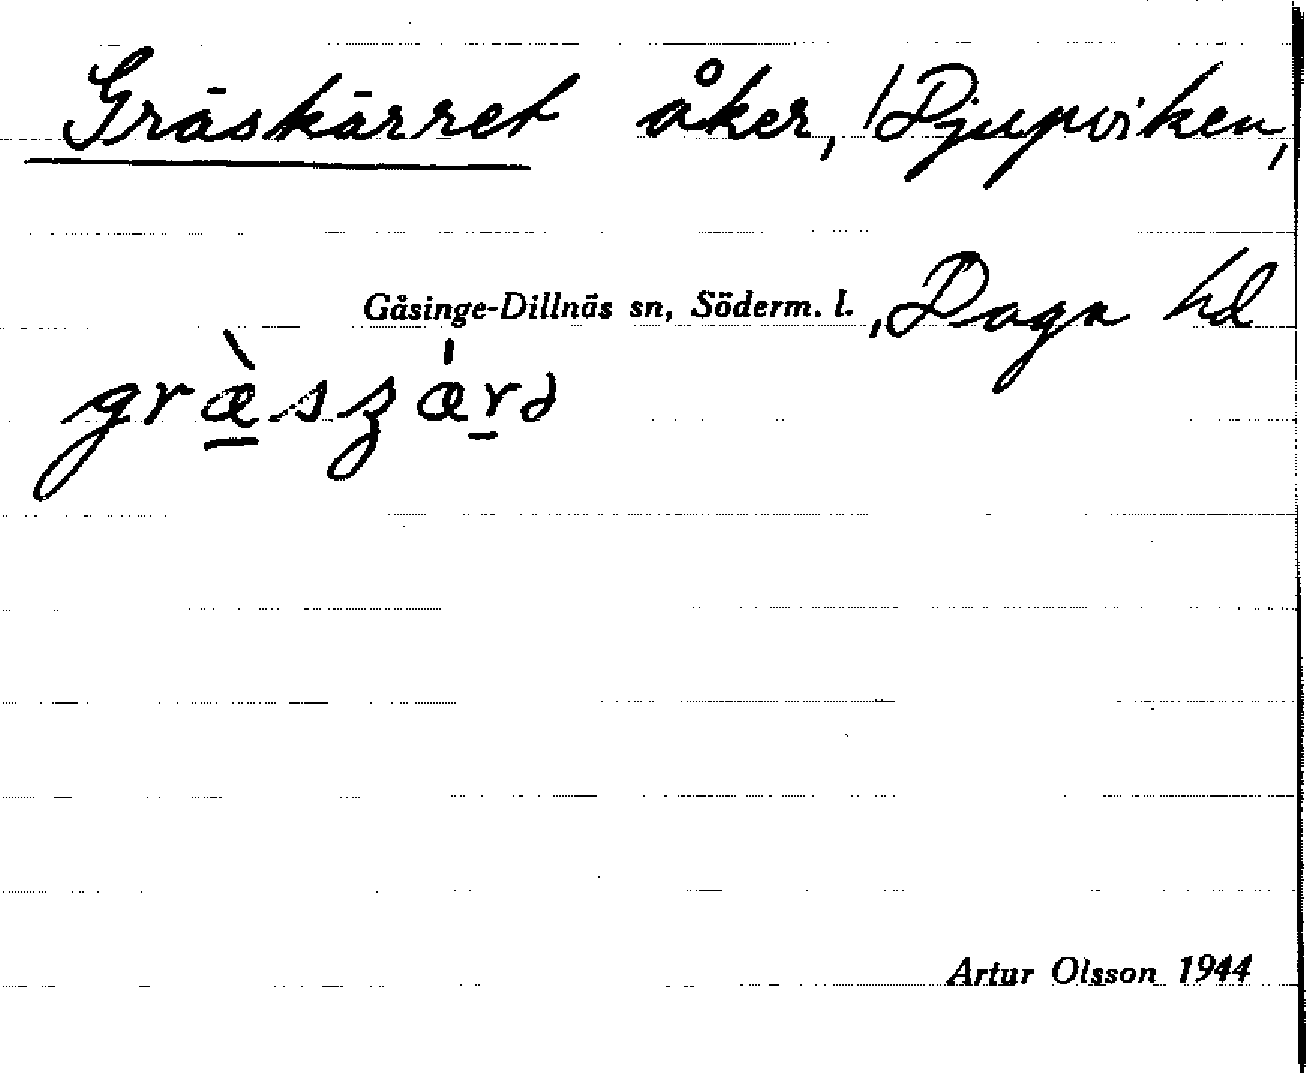 Gräskärret åker, Djupviken,
Gåsinge-Dillnäs sn, Söderm. l., Daga hd
græ̀sʒǽrə
Artur Olsson 1944